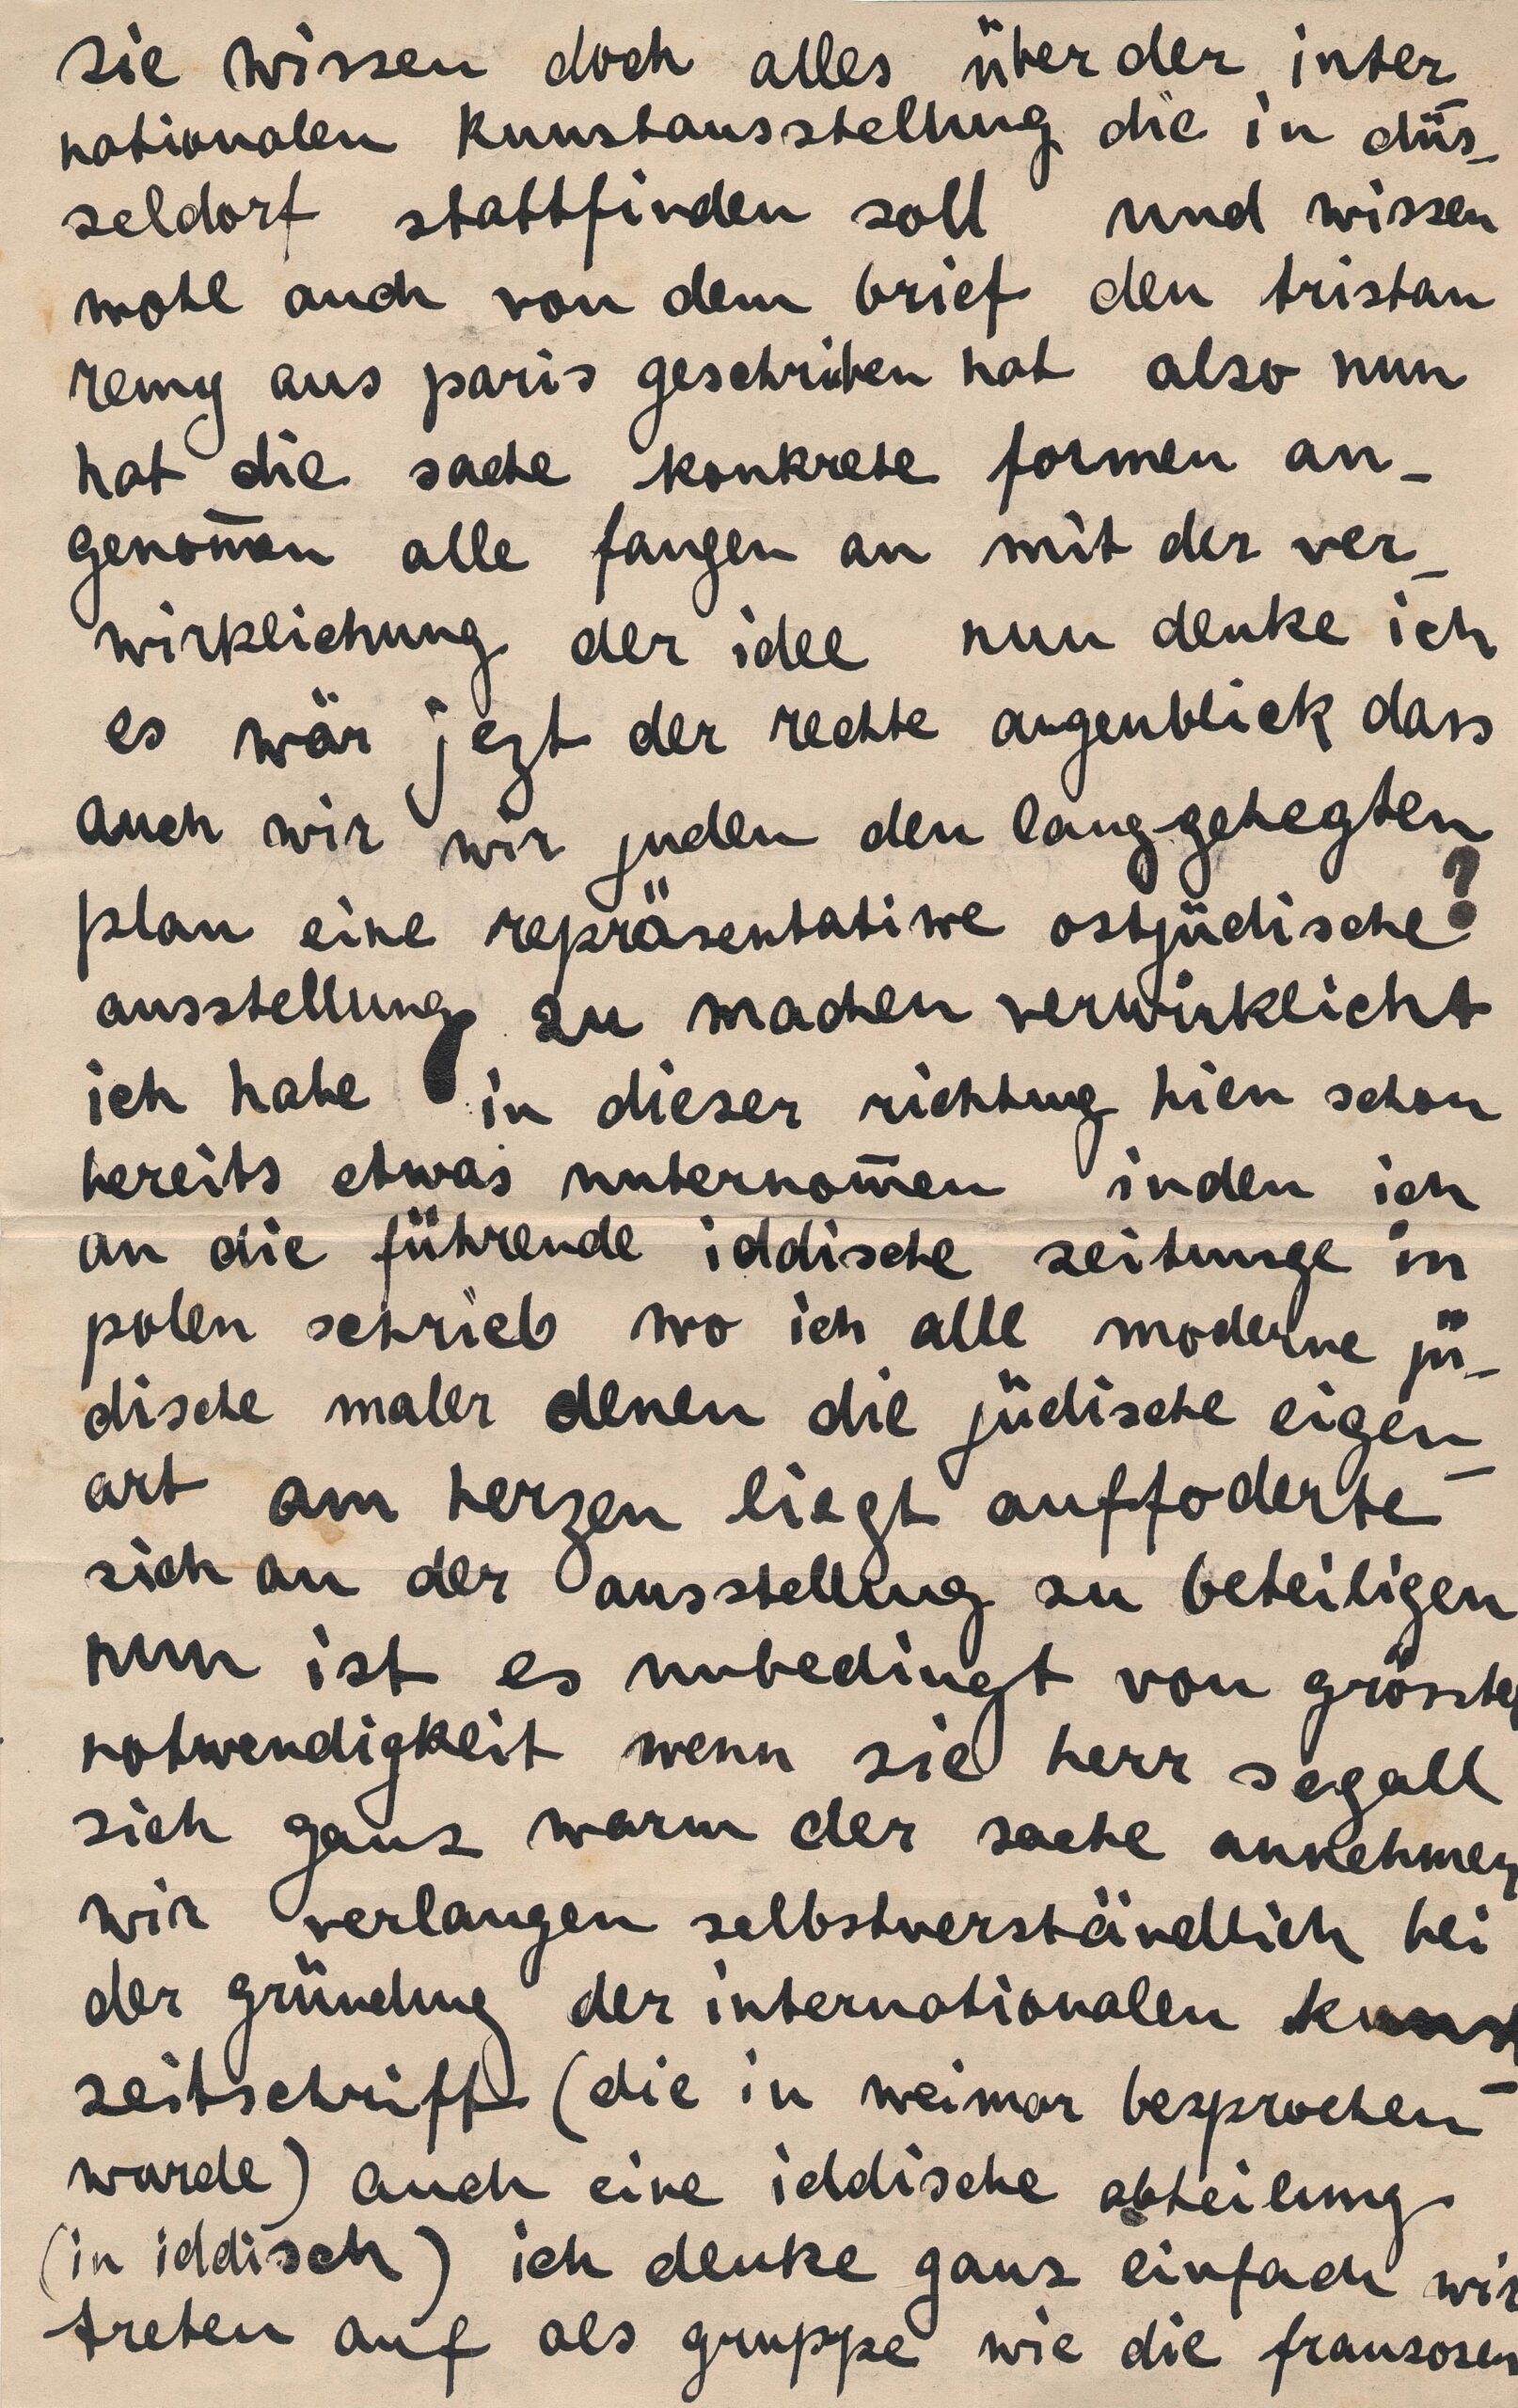 sie wissen doch alles über der inter
nationalen kunstausstellung die in düs_
seldorf stattfinden soll und wissen
wohl auch von dem brief den tristan
remy aus paris geschriben hat also nun
hat die sache konkrete formen an_
genom̄en alle fangen an mit der ver_
wirklichung der idee nun denke ich
es wär jezt der rechte augenblick dass
auch wir wir juden den lang gehegten
plan eine repräsentatiwe ostjüdische?
ausstellung zu machen verwirklicht
ich habe in dieser richtung hier schon
bereits etwas unternom̄en inden ich
an die führende iddische zeitunge in
polen schrieb wo ich alle moderne jü_
dische maler denen die jüdische eigen_
art am herzen liegt auffoderte
sich an der ausstellung zu beteiligen
nun ist es unbedingt von grösster
notwendigkeit wenn sie herr segall
sich ganz warm der sache annehmen
wir verlangen selbstverständlich bei
der gründung der internationalen kunst_
zeitschrift (die in weimar besprochen
wurde) auch eine iddische abteilung
(in iddisch) ich denke ganz einfach wir
treten auf als gruppe wie die franzosen